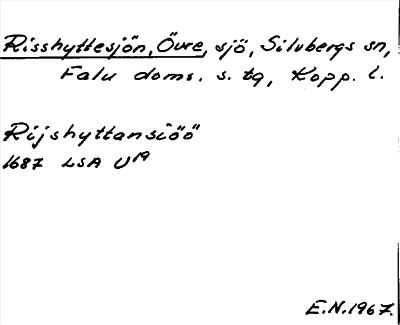 Risshyttesjön, Övre, sjö, Silvbergs sn,
Falu doms. s. tg, Kopp. l.
Rijshyttansiöö
1687 LSA U19
E.N. 1967.